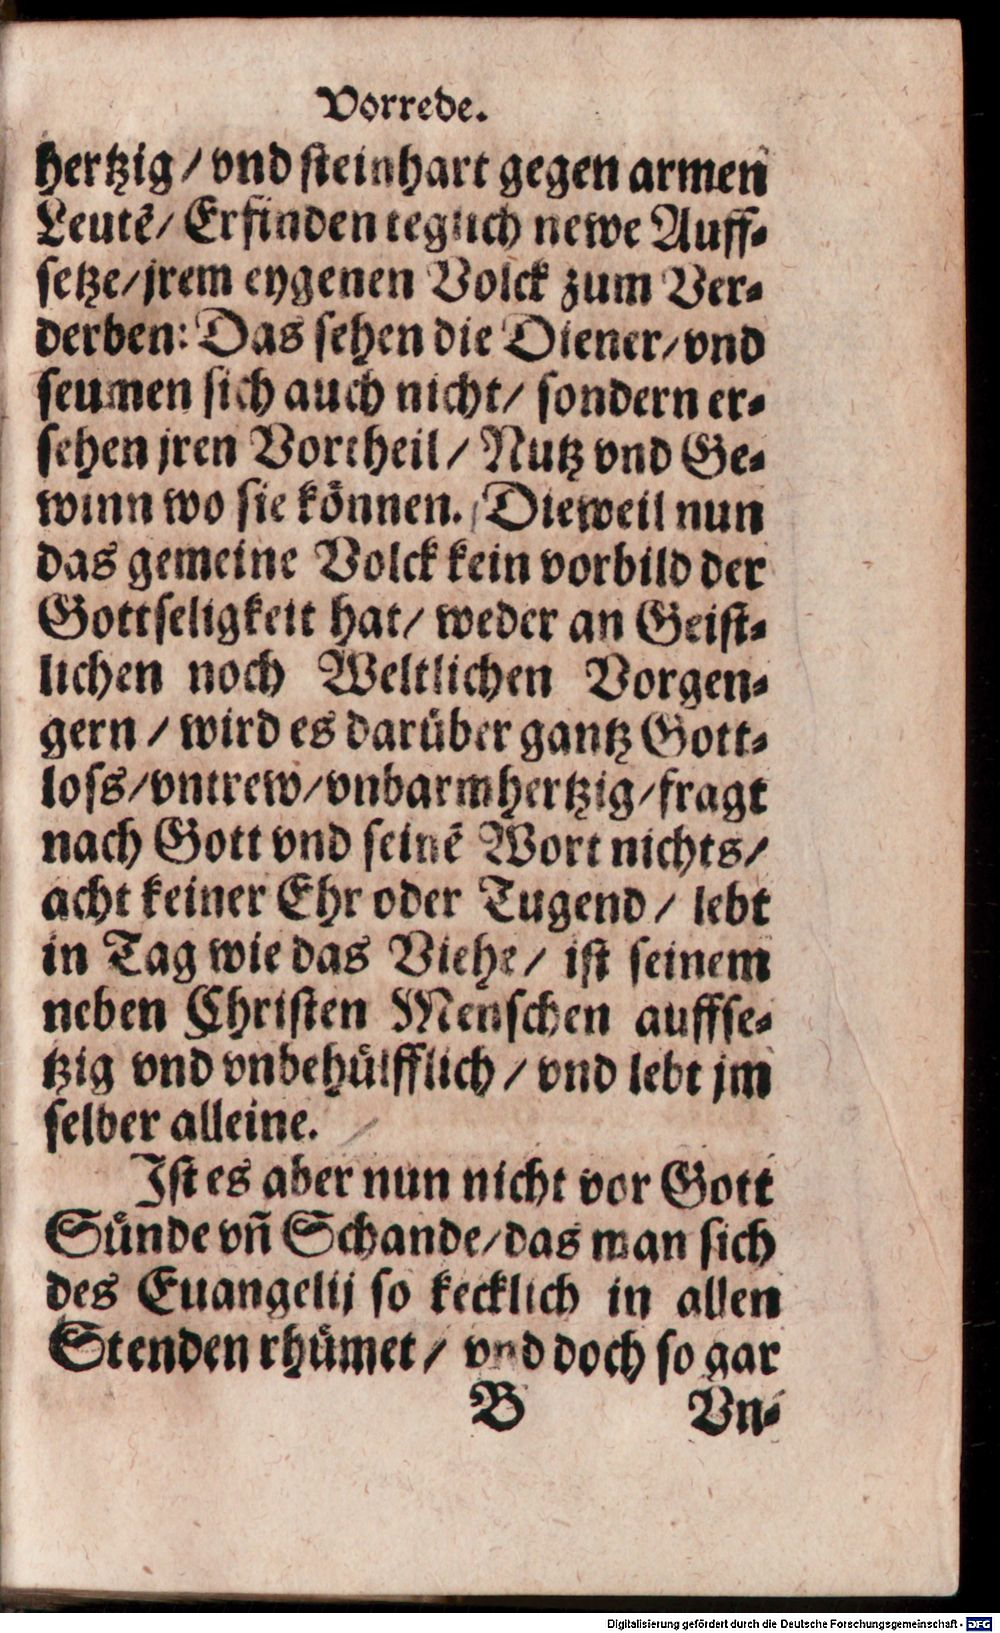 Vorrede.
hertzig / vnd steinhart gegen armen
Leutẽ / Erfinden teglich newe Auff-
setze / jrem eygenen Volck zum Ver-
derben: Das sehen die Diener / vnd
seumen sich auch nicht / sondern er-
sehen jren Vortheil / Nutz vnd Ge-
winn wo sie können. Dieweil nun
das gemeine Volck kein vorbild der
Gottseligkeit hat / weder an Geist-
lichen noch Weltlichen Vorgen-
gern / wird es darüber gantz Gott-
loss / vntrew / vnbarmhertzig / fragt
nach Gott vnd seinẽ Wort nichts /
acht keiner Ehr oder Tugend / lebt
in Tag wie das Viehe / ist seinem
neben Christen Menschen auffse-
tzig vnd vnbehülfflich / vnd lebt jm
selber alleine.
Ist es aber nun nicht vor Gott
Sünde vñ Schande / das man sich
des Euangelij so kecklich in allen
Stenden rhümet / vnd doch so gar
B Vn-
Digitalisierung gefördert durch die Deutsche Forschungsgemeinschaft - DFG